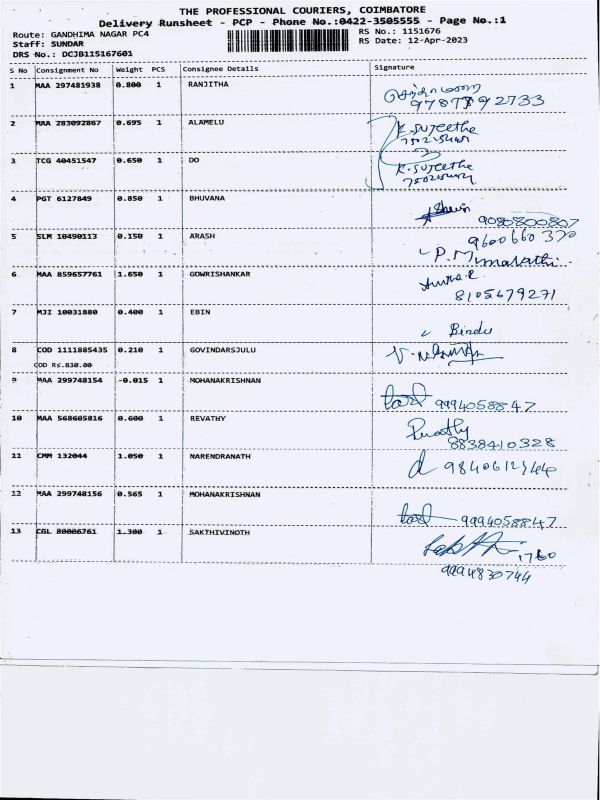 THE PROFESSIONAL COURIERS, COIMBATORE
Delivery Runsheet - PCP - Phone No.:0422-3505555 - Page No.:1
Route: GANDHIMA NAGAR PC4 RS No.: 1151676
Staff: SUNDAR RS Date: 12-Apr-2023
DRS No.: DCJB115167601
S No Consignment No Weight PCS Consignee Details Signature
1 MAA 297481938 0.800 1 RANJITHA
2 MAA 283092867 0.695 1 ALAMELU K.Sujeetha
3 TCG 40451547 0.650 1 DO K.Sujeetha
4 PGT 6127849 0.850 1 BHUVANA
9080800807
5 SLM 10490113 0.150 1 ARASH 9600660320
P.M
6 MAA 859657761 1.650 1 GOWRISHANKAR
8105679271
7 MJI 10031880 0.400 1 EBIN Bindu
8 COD 1111885435 0.210 1 GOVINDARSJULU
COD Rs.830.00
9 MAA 299748154 -0.015 1 MOHANAKRISHNAN
9994058847
10 MAA 568605816 0.600 1 REVATHY
8838410328
11 CMM 132044 1.050 1 NARENDRANATH
12 MAA 299748156 0.565 1 MOHANAKRISHNAN
9994058847
13 CGL 80006761 1.300 1 SAKTHIVINOTH
9994830744